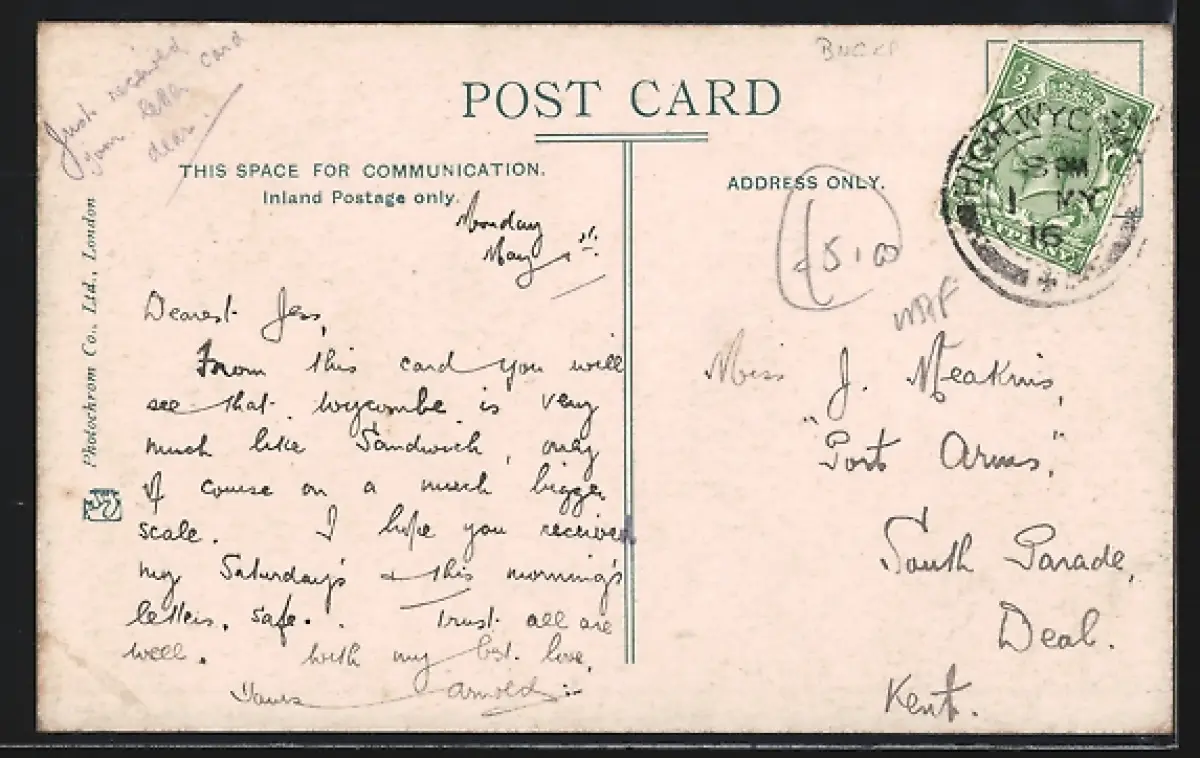 Just received
your letter card
dear.
BUCKS
POST CARD
THIS SPACE FOR COMMUNICATION.
Inland Postage only.
ADDRESS ONLY.
Photochrom Co., Ltd., London
Monday
May 1st.
Dearest Jess,
From this card you will
see that Wycombe is very
much like Sandwich, only
of course on a much bigger
scale. I hope you received
my Saturday's & this morning's
letters, safe. Trust all are
well. With my best love,
Yours Arnold
½
HIGH WYCOMBE
1 MY
16
£5.00
Miss J. Meakins,
"Port Arms,"
South Parade,
Deal.
Kent.